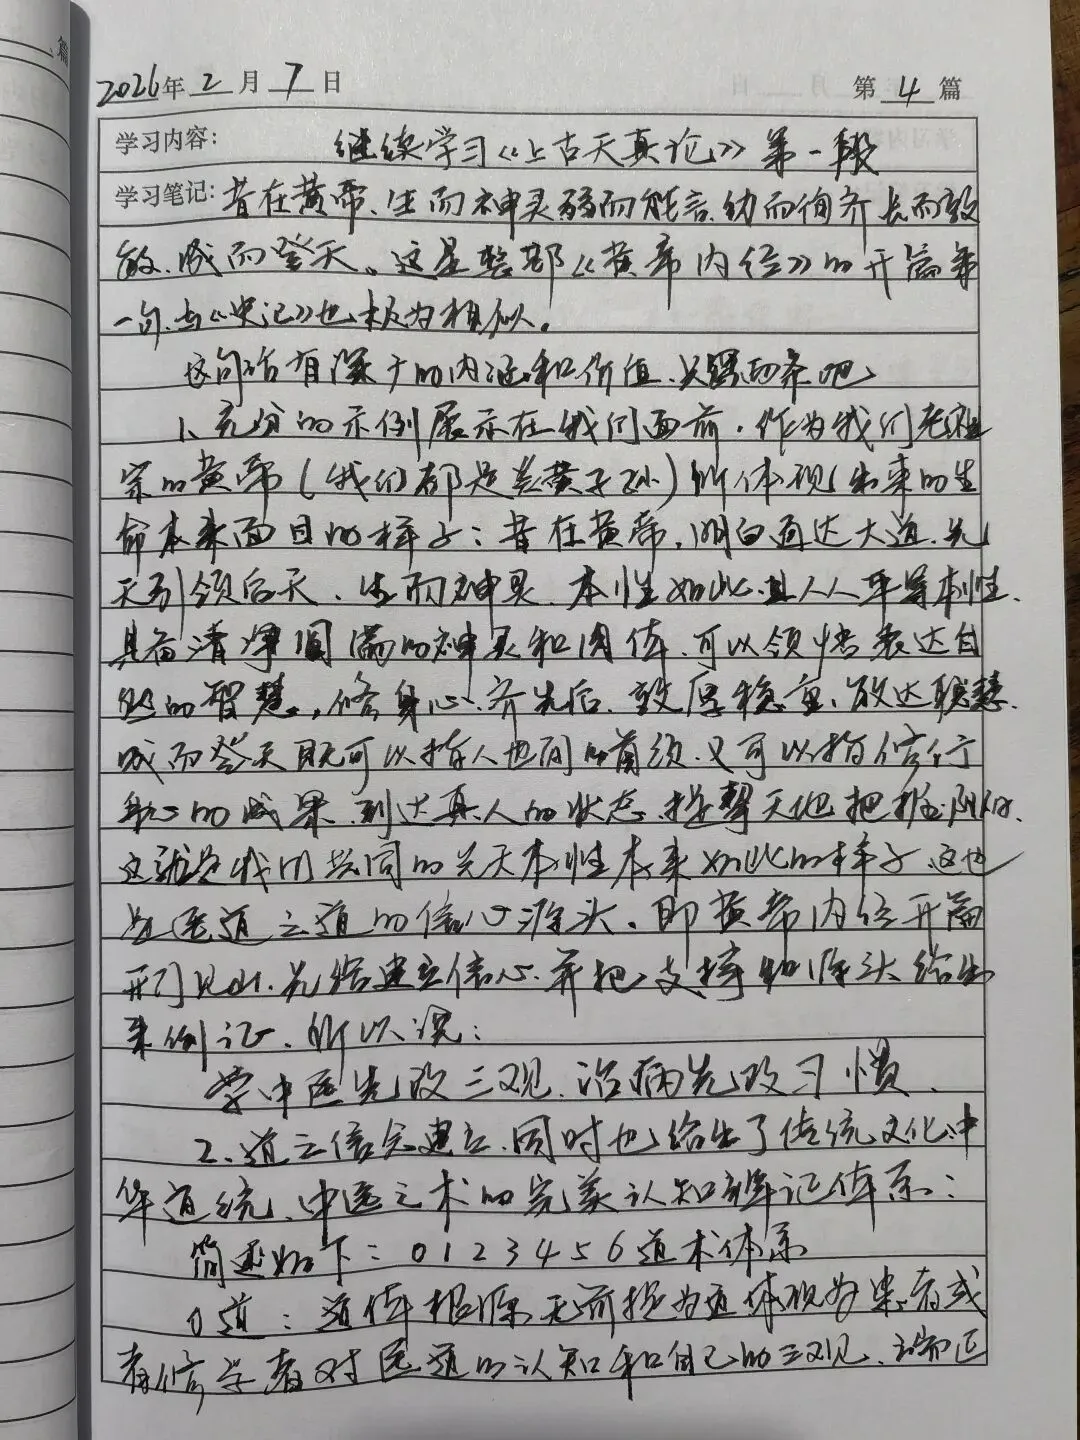 篇
2026年 2 月 7 日 第 4 篇
学习内容： 继续学习《上古天真论》第一段
学习笔记：昔在黄帝、生而神灵弱而能言、幼而徇齐长而敦
敏、成而登天。这是整部《黄帝内经》的开篇第
一句、与《史记》也极为相似。
这句话有深于的内涵和价值、只
1、充分的示例展示在我们面前，作为我们老祖
宗的黄帝（我们都是炎黄子孙）所体现出来的生
命本来面目的样子：昔在黄帝，明白通达大道、先
天引领后天、生而神灵、本性如此、且人人平等本性、
具备清净圆满的神灵和肉体、可以领悟表达自
然的智慧，修身心、齐先后、敦厚稳重、敏达聪慧、
成而登天既可以指人世间的首领、又可以指修行
的成果、到达真人的状态、提挈天地把握阴阳、
这就是我们共同的先天本性本来如此的样子、这也
是医道之道的信心源头、即黄帝内经开篇
开门见山、先给建立信心、并把支持和源头给出
来例证、所以说：
学中医先改三观、治病先改习惯、
2、道之信念建立、同时也给出了传统文化中
华道统、中医之术的完美认知辩记体系：
简述如下：0123456道术体系
0道：道体根源无前提为道体现为患者或
者修学者对医道的认知和自己的三观、端正